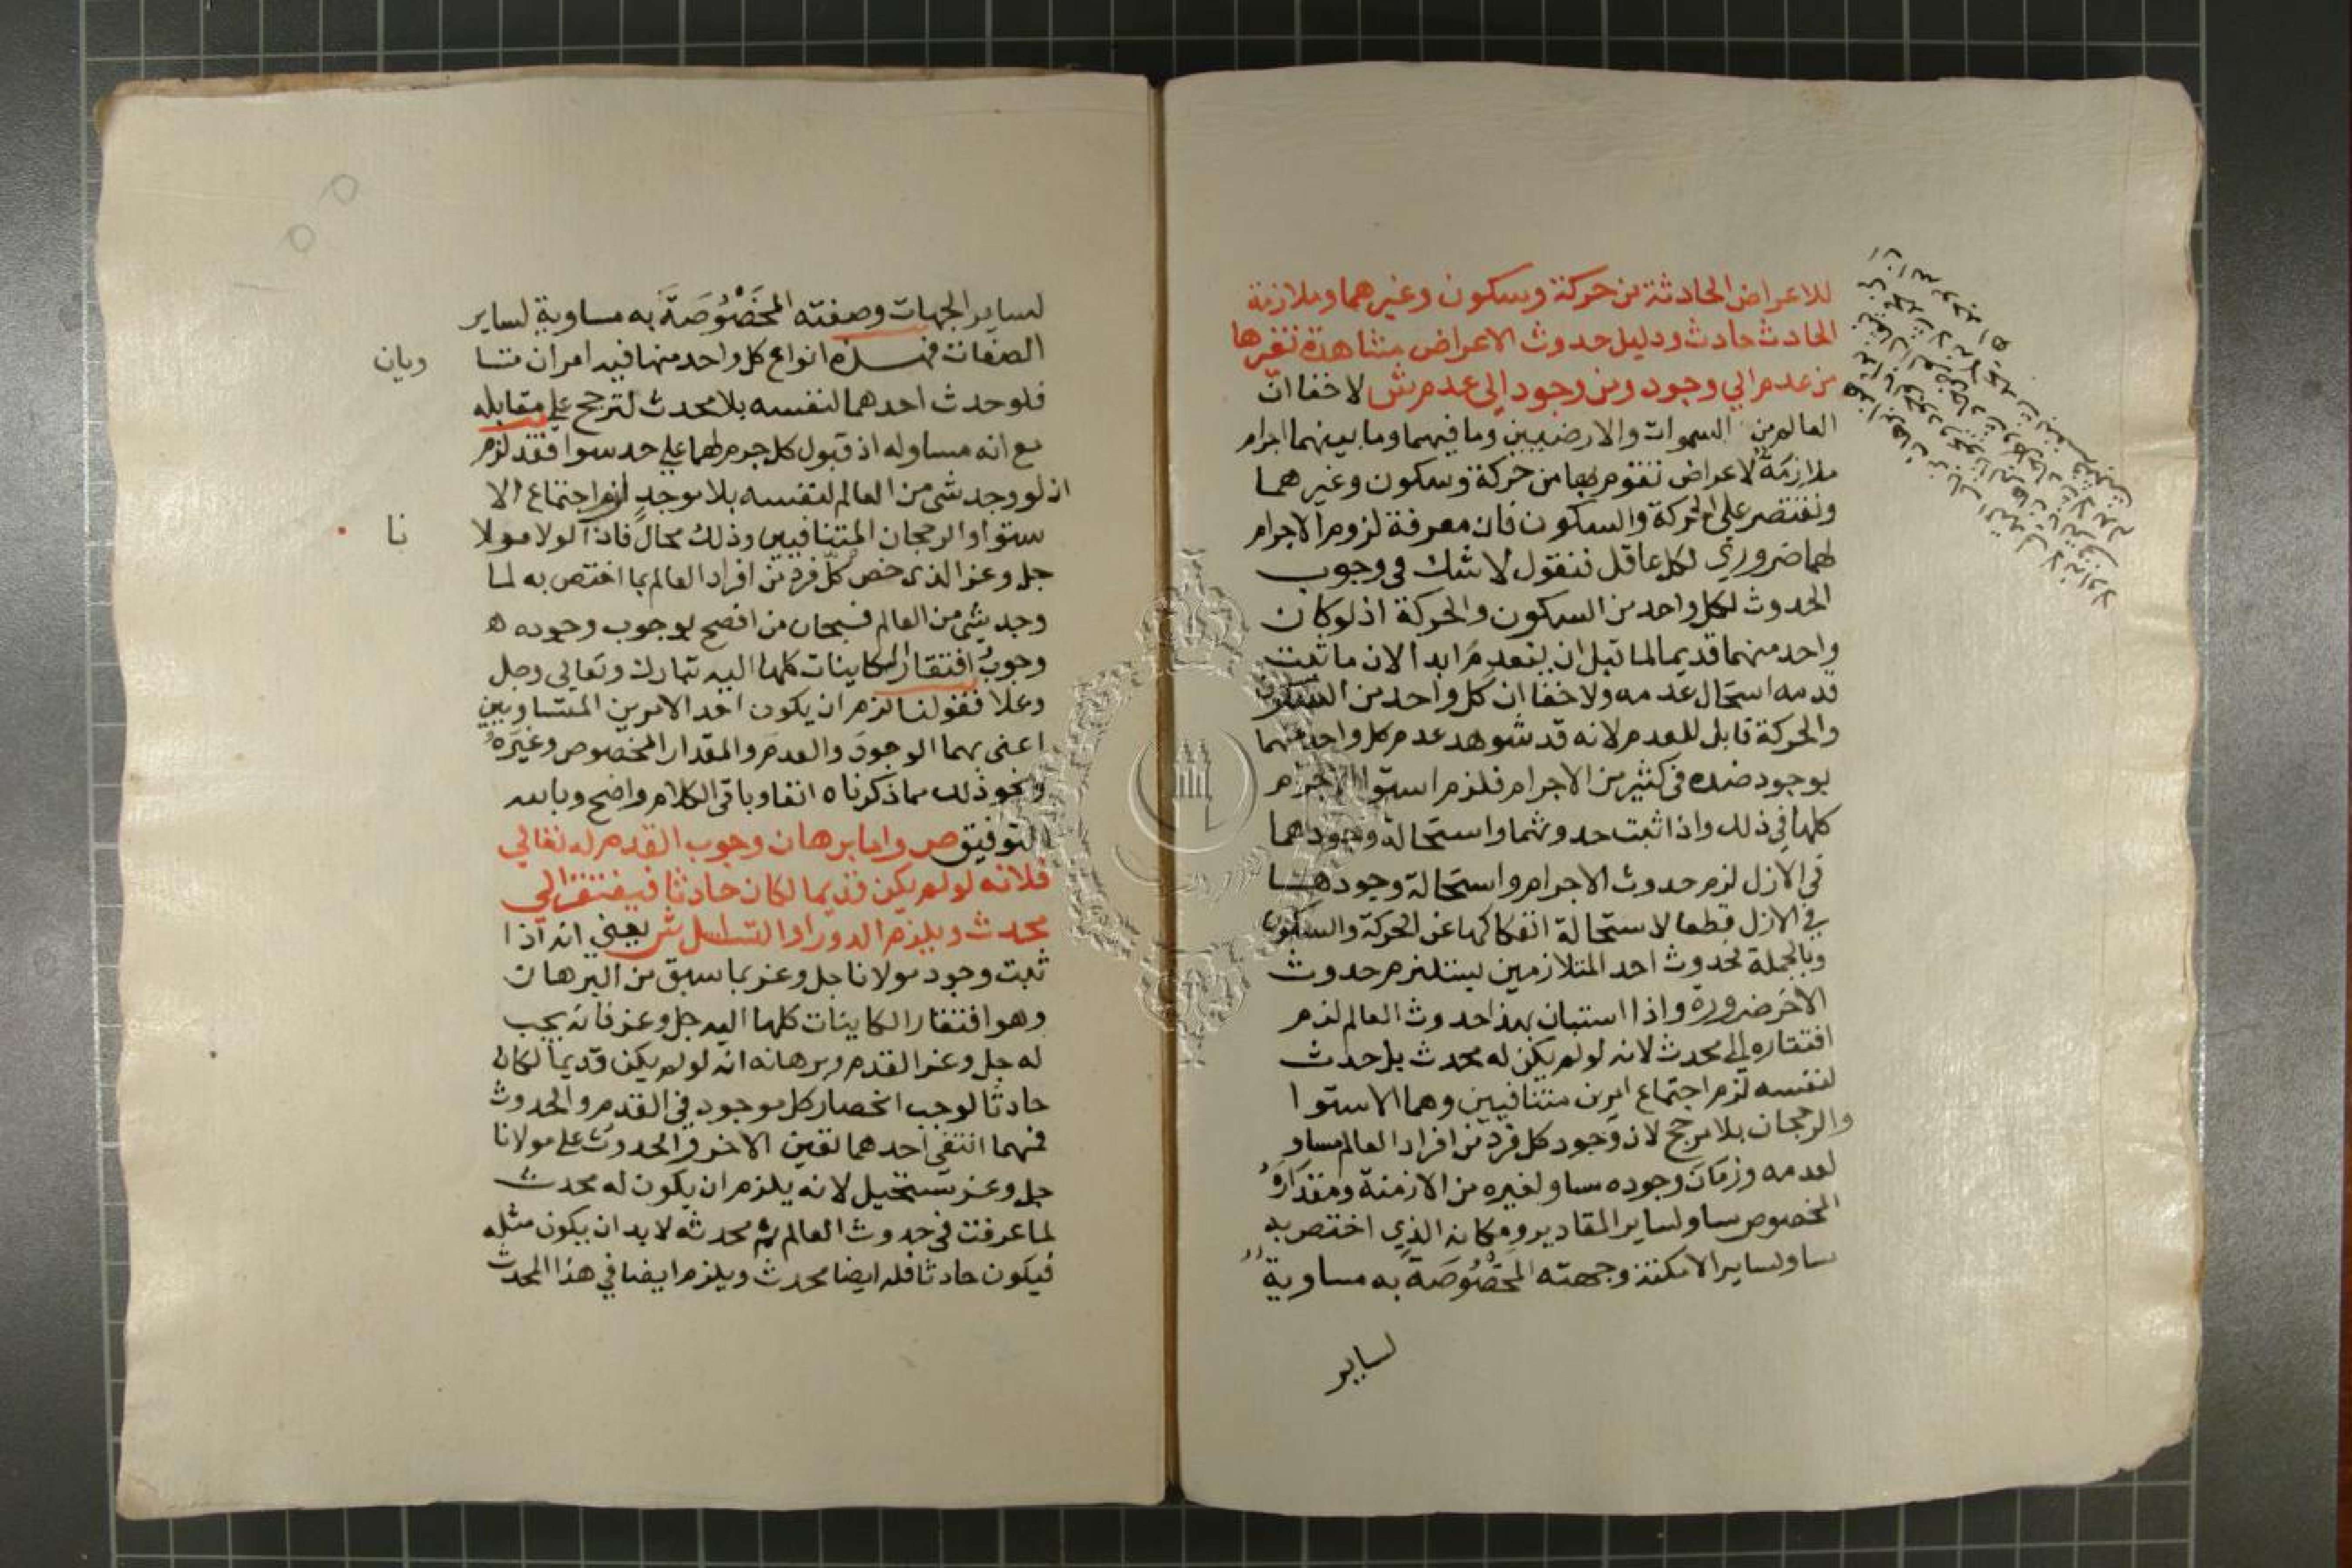 للاعراض الحادثة من حركة وسكون وغيرهما وملازمة
الحادث حادث ودليل حدوث الاعراض مشاهدة تغيرها
من عدم الي وجود ومن وجود الى عدم ش لا خفا ان
العالم من السموات والارضيين وما فيهما وما بينهما اجرام
ملازمة لاعراض تقوم بها من حركة وسكون وغيرهما
ونقتصر على الحركة والسكون فان معرفة لزوم الاجرام
لهما ضروري لكل عاقل فنقول لا شك في وجوب
الحدوث لكل واحد من السكون والحركة اذ لو كان
واحد منهما قديما لما قبل ان ينعدم ابدا لان ما ثبت
قدمه استحال عدمه ولا خفا ان كل واحد من السكون
والحركة قابل للعدم لانه قد شوهد عدم كل واحد منهما
بوجود ضده في كثير من الاجرام فلزم استوا الاجرام
كلها في ذلك واذا ثبت حدوثهما واستحالة وجودهما
في الازل لزم حدوث الاجرام واستحالة وجودها
في الازل قطعا لاستحالة انفكاكها عن الحركة والسكون
وبالجملة فحدوث احد المتلازمين يستلزم حدوث
الاخر ضرورة واذا استبان بهذا حدوث العالم لزم
افتقاره الى محدث لانه لو لم يكن له محدث بل حدث
لنفسه لزم اجتماع امرين متنافيين وهما الاستوا
والرجحان بلا مرجح لان وجود كل فرد من افراد العالم مساو
لعدمه وزمان وجوده مساو لغيره من الازمنة ومقداره
المخصوص مساو لساير المقادير ومكانه الذي اختص به
مساو لساير الامكنة وجهته المخصوصة به مساوية
لساير
لساير الجهات وصفته المخصوصة به مساوية لساير
الصفات فهذه انواع كل واحد منها فيه امران متسا
ويان
فلو حدث احدهما لنفسه بلا محدث لترجح على مقابله
مع انه مساو له اذ قبول كل جرم لهما على حد سوا فقد لزم
ان لو وجد شي من العالم لنفسه بلا موجد لزم اجتماع الا
ستوا والرجحان المتنافيين وذلك محال فاذا لولا مولا
نا
جل وعز الذي خص كل فرد من افراد العالم بما اختص به لما
وجد شي من العالم فسبحان من افصح بوجوب وجوده ه
وجوب افتقار الكاينات كلها اليه تبارك وتعالي وجل
وعلا فقولنا لزم ان يكون احد الامرين المتساويين
اعني بهما الوجود والعدم والمقدار المخصوص وغيره
ونحو ذلك مما ذكرناه انفا وباقي الكلام واضح وبالله
التوفيق ص واما برهان وجوب القدم له تعالي
فلانه لو لم يكن قديما لكان حادثا فيفتقر الي
محدث ويلزم الدور او التسلسل ش يعني انه اذا
ثبت وجود مولانا جل وعز بما سبق من البرهان
وهو افتقار الكاينات كلها اليه جل وعز فانه يجب
له جل وعز القدم وبرهانه انه لو لم يكن قديما لكان
حادثا لوجب انحصار كل موجود في القدم والحدوث
فمهما انتفي احدهما تعين الاخر والحدوث على مولانا
جل وعز مستحيل لانه يلزم ان يكون له محدث
لما عرفت في حدوث العالم ثم محدثه لا بد ان يكون مثله
فيكون حادثا فله ايضا محدث ويلزم ايضا في هذا المحدث